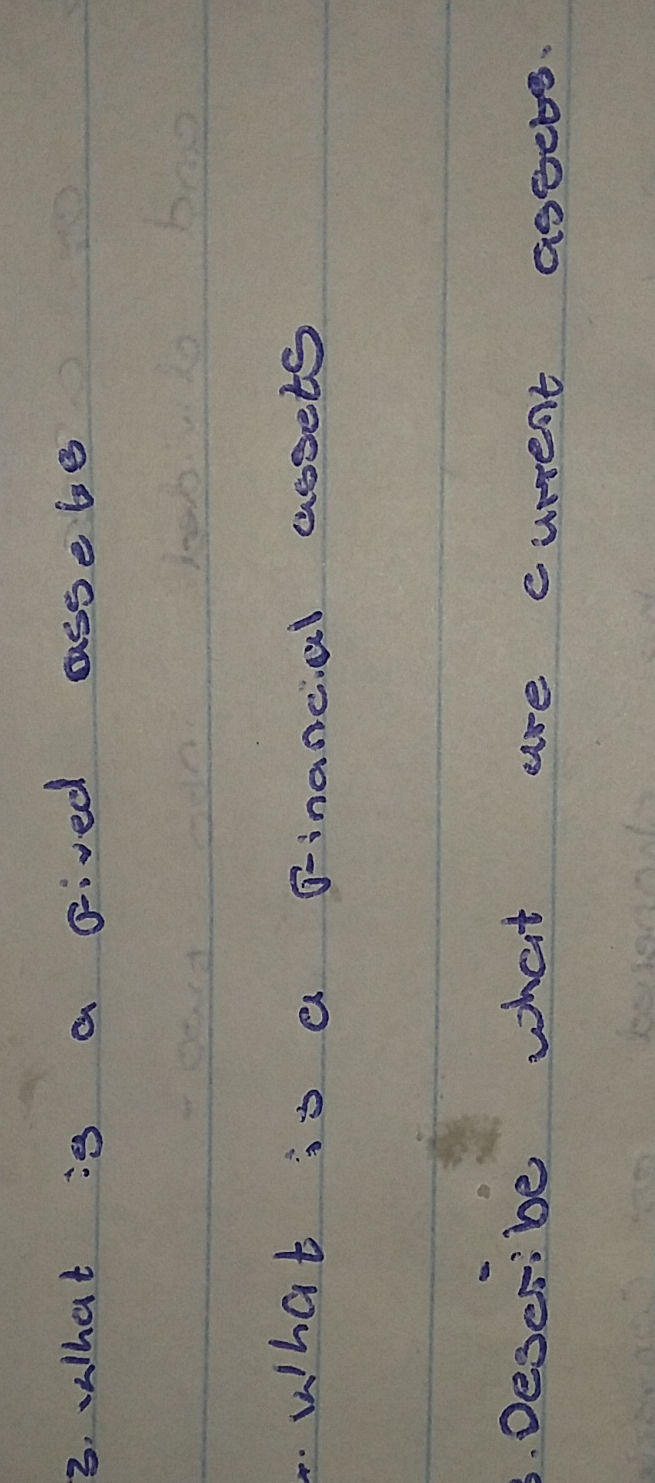 3. What is a fixed assets
. What is a financial assets
. Describe what are current assets.